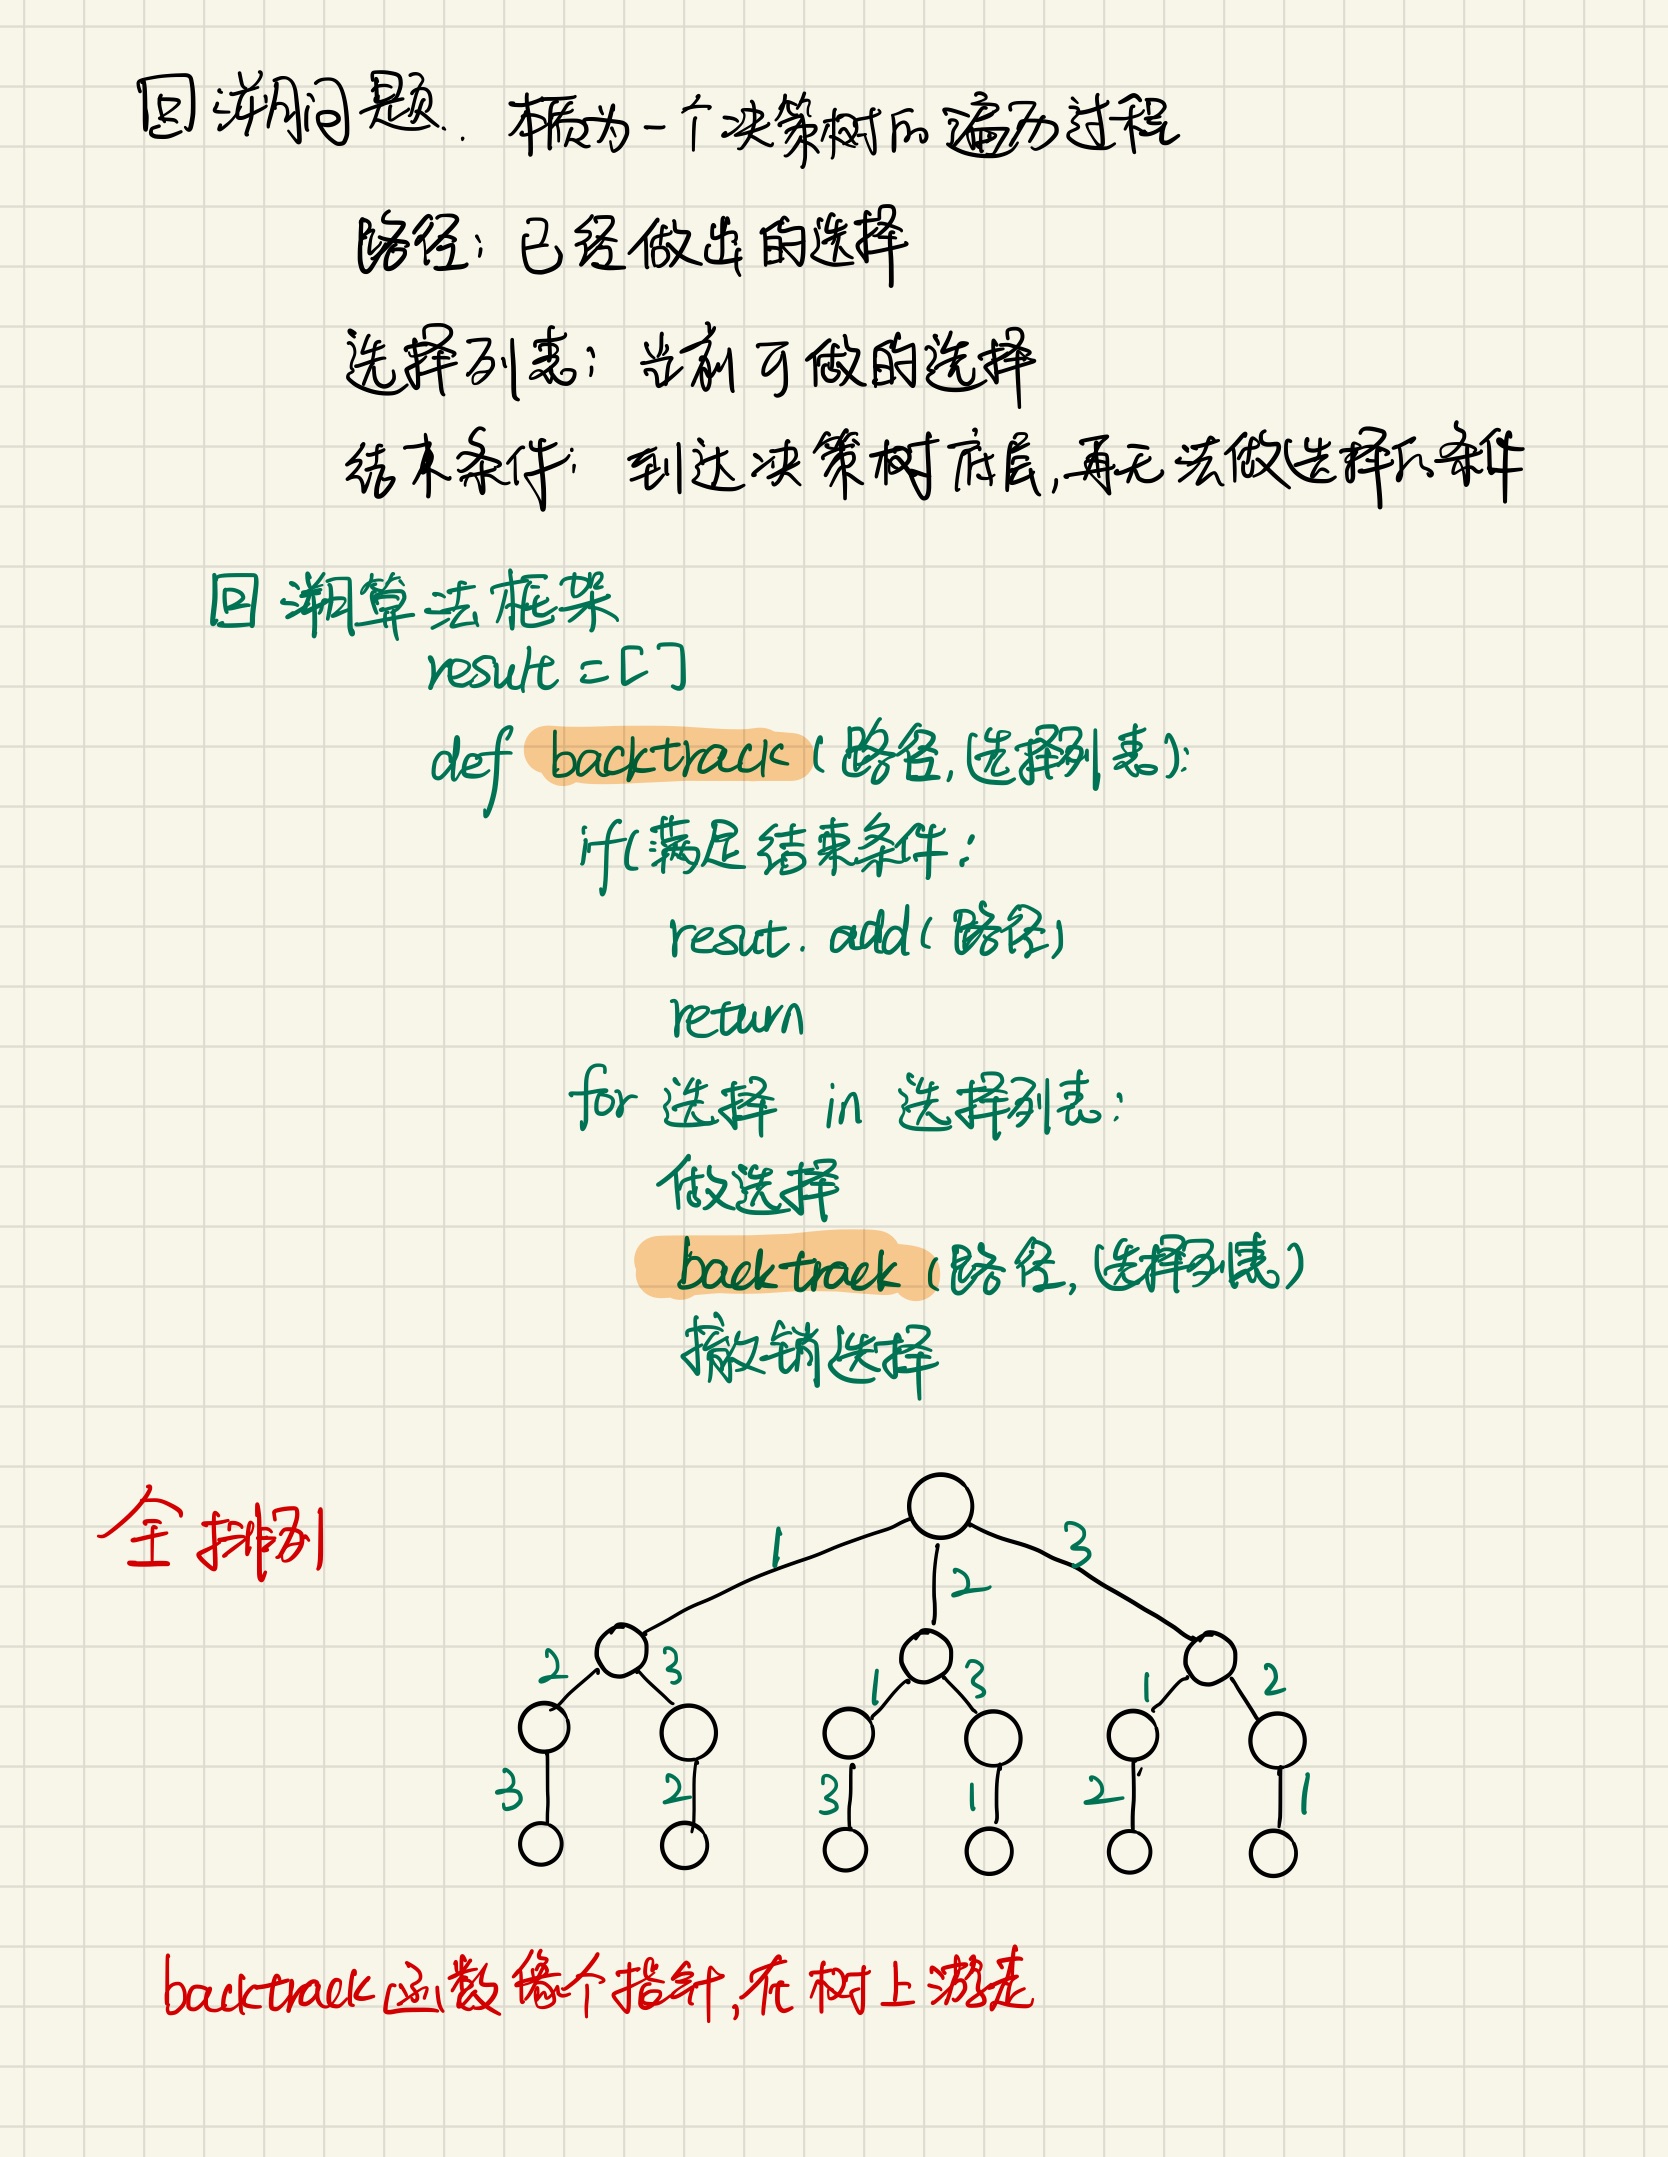 回溯问题. 本质为一个决策树的遍历过程
路径: 已经做出的选择
选择列表: 当前可做的选择
结束条件: 到达决策树底层,再无法做选择的条件
回溯算法框架
result = []
def backtrack(路径,选择列表):
if(满足结束条件:
resut.add(路径)
return
for 选择 in 选择列表:
做选择
backtrack(路径,选择列表)
撤销选择
全排列
1 2 3
2 3 1 3 1 2
3 2 3 1 2 1
backtrack函数像个指针,在树上游走